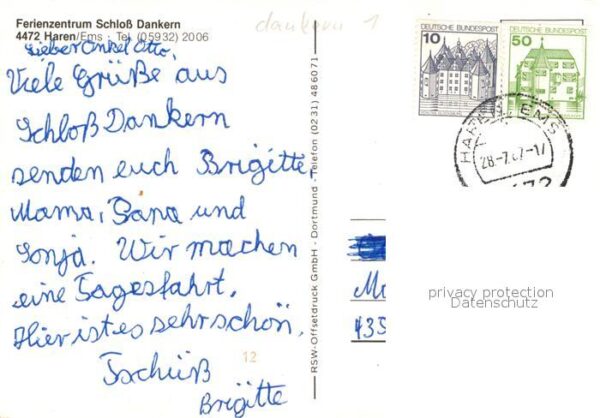 Ferienzentrum Schloß Dankern
4472 Haren/Ems · Tel. (05932) 2006
dankern 1
Lieber Onkel Otto,
Viele Grüße aus
Schloß Dankern
senden euch Brigitte,
Mama, Jana und
Sonja. Wir machen
eine Tagesfahrt.
Hier ist es sehr schön.
Tschüß
Brigitte
12
RSW-Offsetdruck GmbH · Dortmund · Telefon (0231) 486071
10 DEUTSCHE BUNDESPOST
50 DEUTSCHE BUNDESPOST
HAREN, EMS
435
privacy protection
Datenschutz